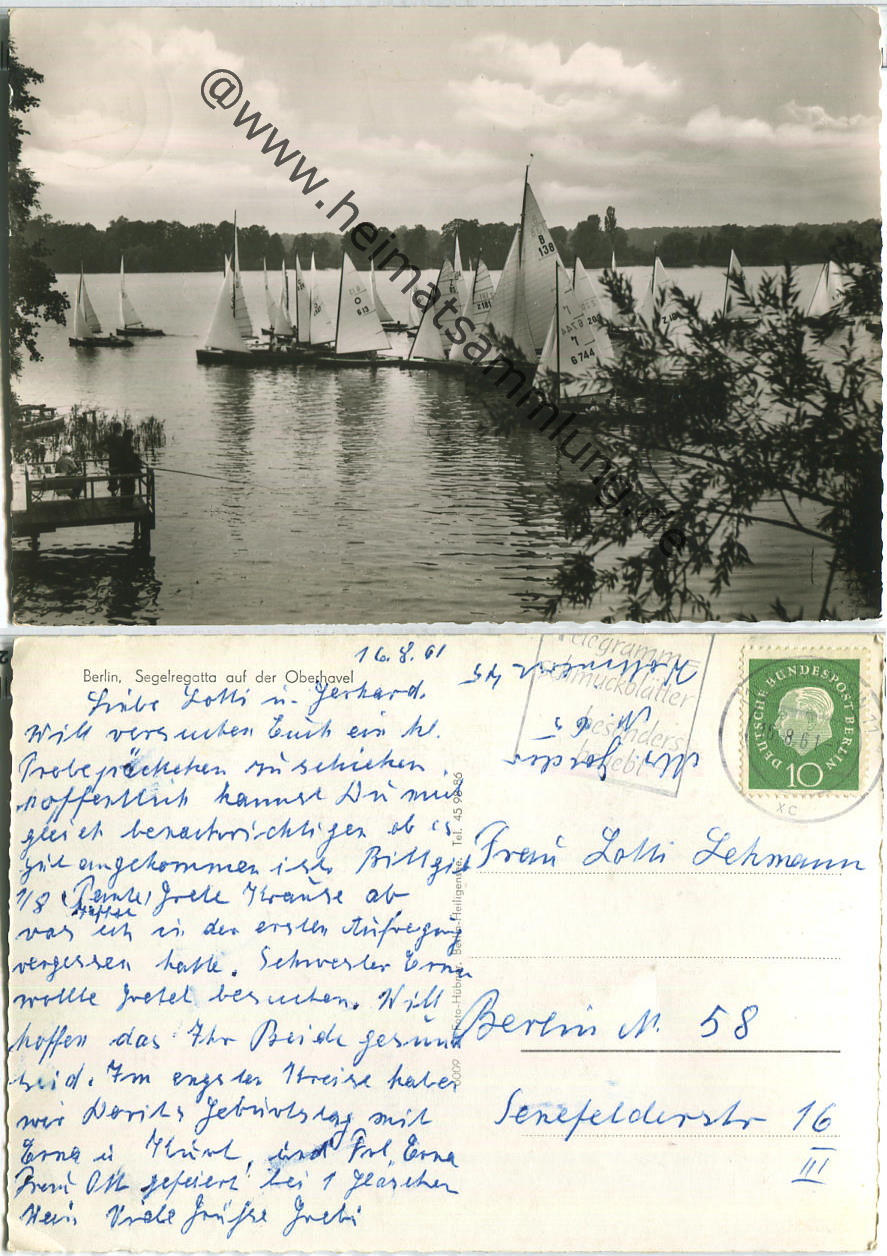 @www.heimatsammlung.de
B
138
O
613
Z
181
Z 181
7
6744
Berlin, Segelregatta auf der Oberhavel
16.8.61
Liebe Lotti u. Gerhard.
Will versuchen Euch ein kl.
Probepäckchen zu schicken,
hoffentlich kannst Du mich
gleich benachrichtigen ob es
gut angekommen ist. Bitte gib
1/8 Kaffee (Tante) Grete Krause ab,
was ich in der ersten Aufregung
vergessen hatte. Schwester Erna
wollte Gretel besuchen. Will
hoffen das Ihr Beide gesund
seid. Im engsten Kreise haben
wir Doris Geburtstag mit
Erna u Kurt, und Frl. Erna
Frau Ott gefeiert bei 1 Gläschen
Wein Viele Grüße Greti
Telegramm=
Schmuckblätter
besonders
beliebt
DEUTSCHE BUNDESPOST BERLIN
10
8.61
XC
Foto-Hübner, Berlin-Heiligensee, Tel. 45 98 86
Frau Lotti Lehmann
Berlin N. 58
Senefelderstr 16
III